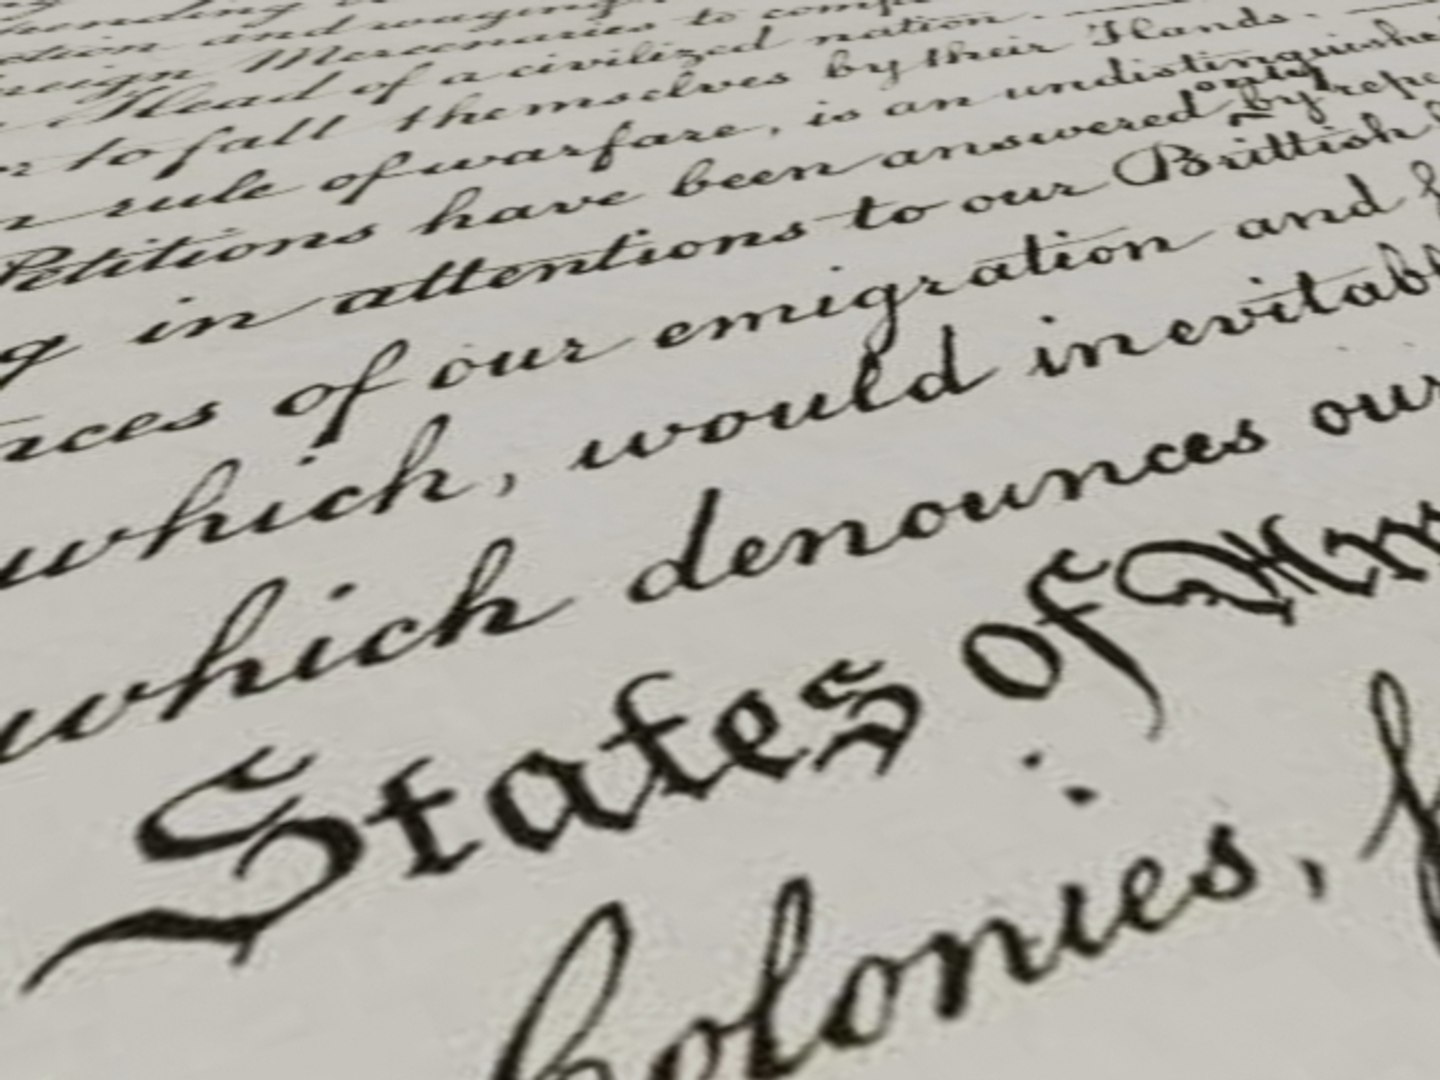 tion and waging
reign Mercenaries to comp
Head of a civilized nation.
to fall themselves by their Hands.
rule of warfare, is an undistinguishe
only
Petitions have been answered by repe
g in attentions to our Brittish
nces of our emigration and
which, would inevitab
which denounces our
States of Am
Colonies,